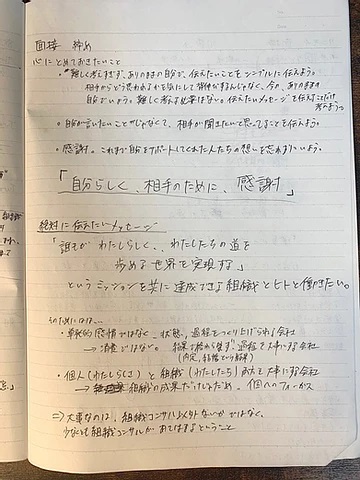 面接 締め
心にとめておきたいこと
・難しく考えすぎず、ありのままの自分で、伝えたいことをシンプルに伝えよう。
相手からどう思われるかを気にして背伸びするんじゃなく、今の、ありのままの
自分でいよう。難しく考える必要はない。伝えたいメッセージを伝えることだけ
考えよう
・自分が言いたいことじゃなくて、相手が聞きたいと思ってることを伝えよう。
・感謝。これまで自分をサポートしてくれた人たちの想いを忘れずにいよう。
「自分らしく、相手のために、感謝」
絶対に伝えたいメッセージ
「誰もがわたしらしく、わたしたちの道を
歩める世界を実現する」
というミッションを共に達成できる組織とヒトと働きたい。
そのためには…
・感情ではなく、状態、過程をつくり上げられる会社
→消費ではない。結果で終わらせず過程を大事にする会社
・個人(わたしらしさ)と組織(わたしたち)両方大事にする会社
→組織の成果だけじゃだめ、個人へのフォーカス
⇒大事なのは、組織コンサル
少なくとも組織コンサルがあてはまるということ